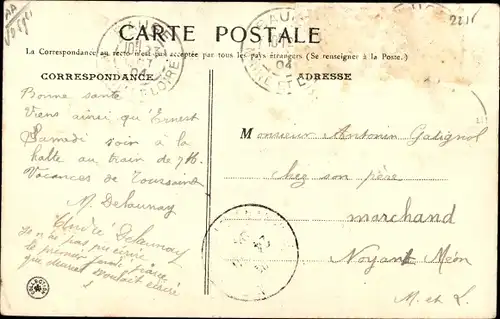 CARTE POSTALE
La Correspondance au recto n'est pas acceptée par tous les pays étrangers (Se renseigner à la Poste.)
CORRESPONDANCE
ADRESSE
Bonne santé
Viens ainsi qu'Ernest
Samedi soir à la
halte au train de 7h.
Vacances de Toussaint
M. Delaunay
André Delaunay
Je n'ai pas pu écrire
le premier
Monsieur Antonin Gatignol
chez son père
marchand
Noyant Méon
M. et L.